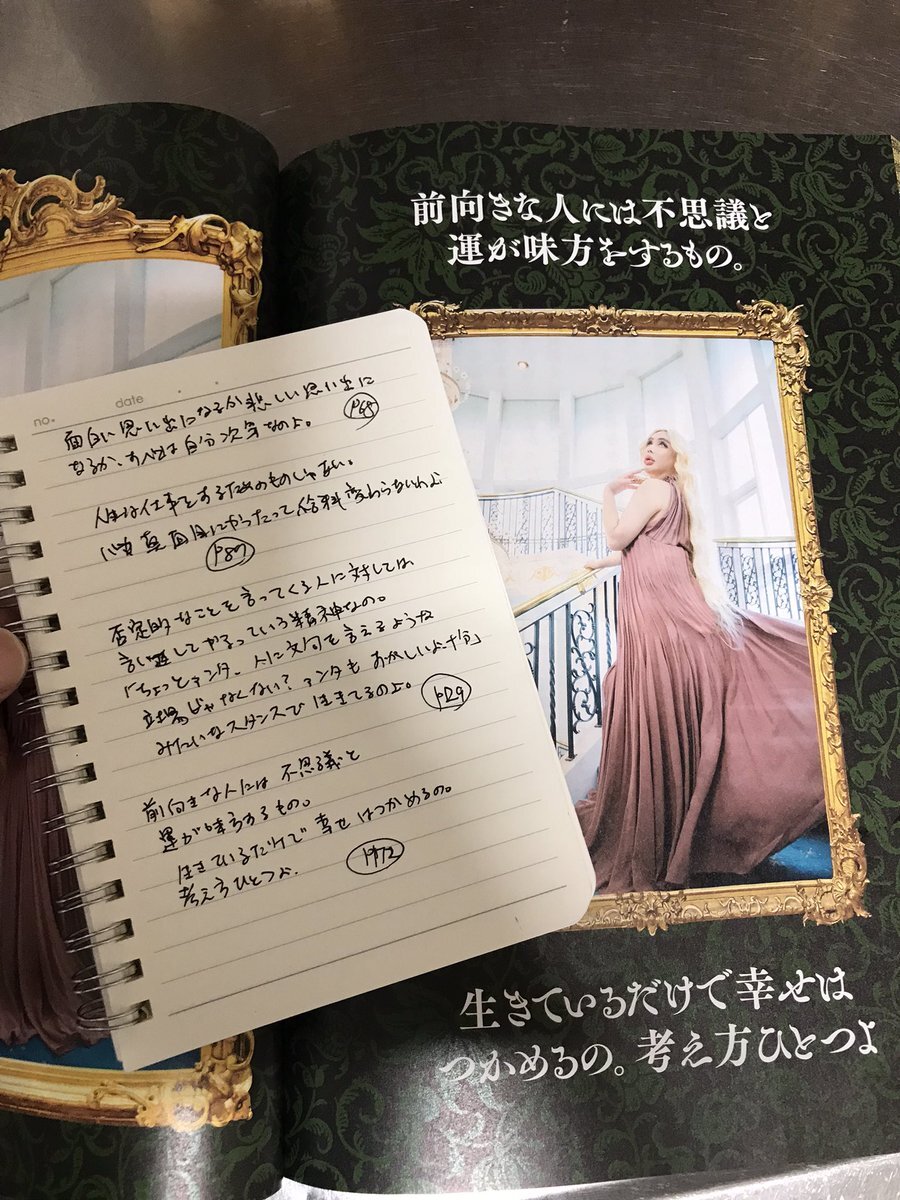 前向きな人には不思議と
運が味方をするもの。
no.
date
面白い思い出になるか悲しい思い出に
なるか、すべては自分次第なのよ。 P68
人生は仕事をするためのものじゃない。
真面目にやったって給料変わらないわよ
P87
否定的なことを言ってくる人に対しては
言い返してやるっている精神なの。
「ちょっとアンタ、人に文句を言えるような
立場じゃなくない?アンタもおかしいよ十分」
みたいなスタンスで生きてるのよ。 P129
前向きな人には不思議と
運が味方するもの。
生きているだけで幸せはつかめるの。
考え方ひとつよ。 P172
生きているだけで幸せは
つかめるの。考え方ひとつよ